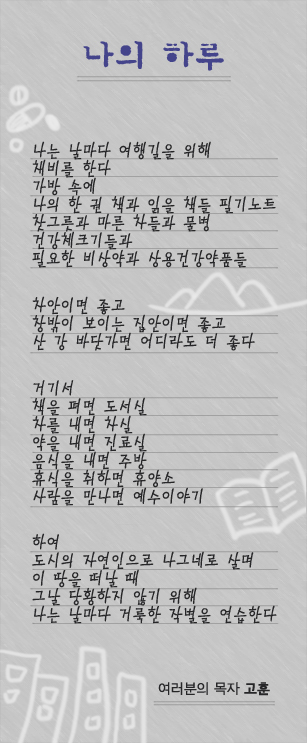 나의 하루
나는 날마다 여행길을 위해
채비를 한다
가방 속에
나의 한 권 책과 읽을 책들 필기노트
찻그릇과 마른 차들과 물병
건강체크기들과
필요한 비상약과 상용건강약품들
차안이면 좋고
창밖이 보이는 집안이면 좋고
산 강 바닷가면 어디라도 더 좋다
거기서
책을 펴면 도서실
차를 내면 차실
약을 내면 진료실
음식을 내면 주방
휴식을 취하면 휴양소
사람을 만나면 예수이야기
하여
도시의 자연인으로 나그네로 살며
이 땅을 떠날 때
그날 당황하지 않기 위해
나는 날마다 거룩한 작별을 연습한다
여러분의 목자 고훈